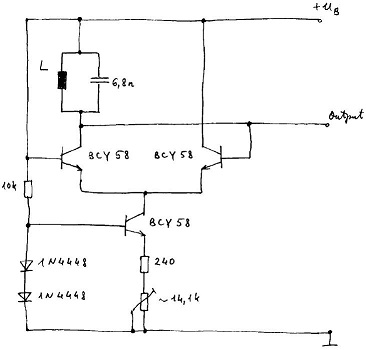 +UB
L
6,8n
Output
BCY 58
BCY 58
10k
BCY 58
1N4448
240
1N4448
~14,1k